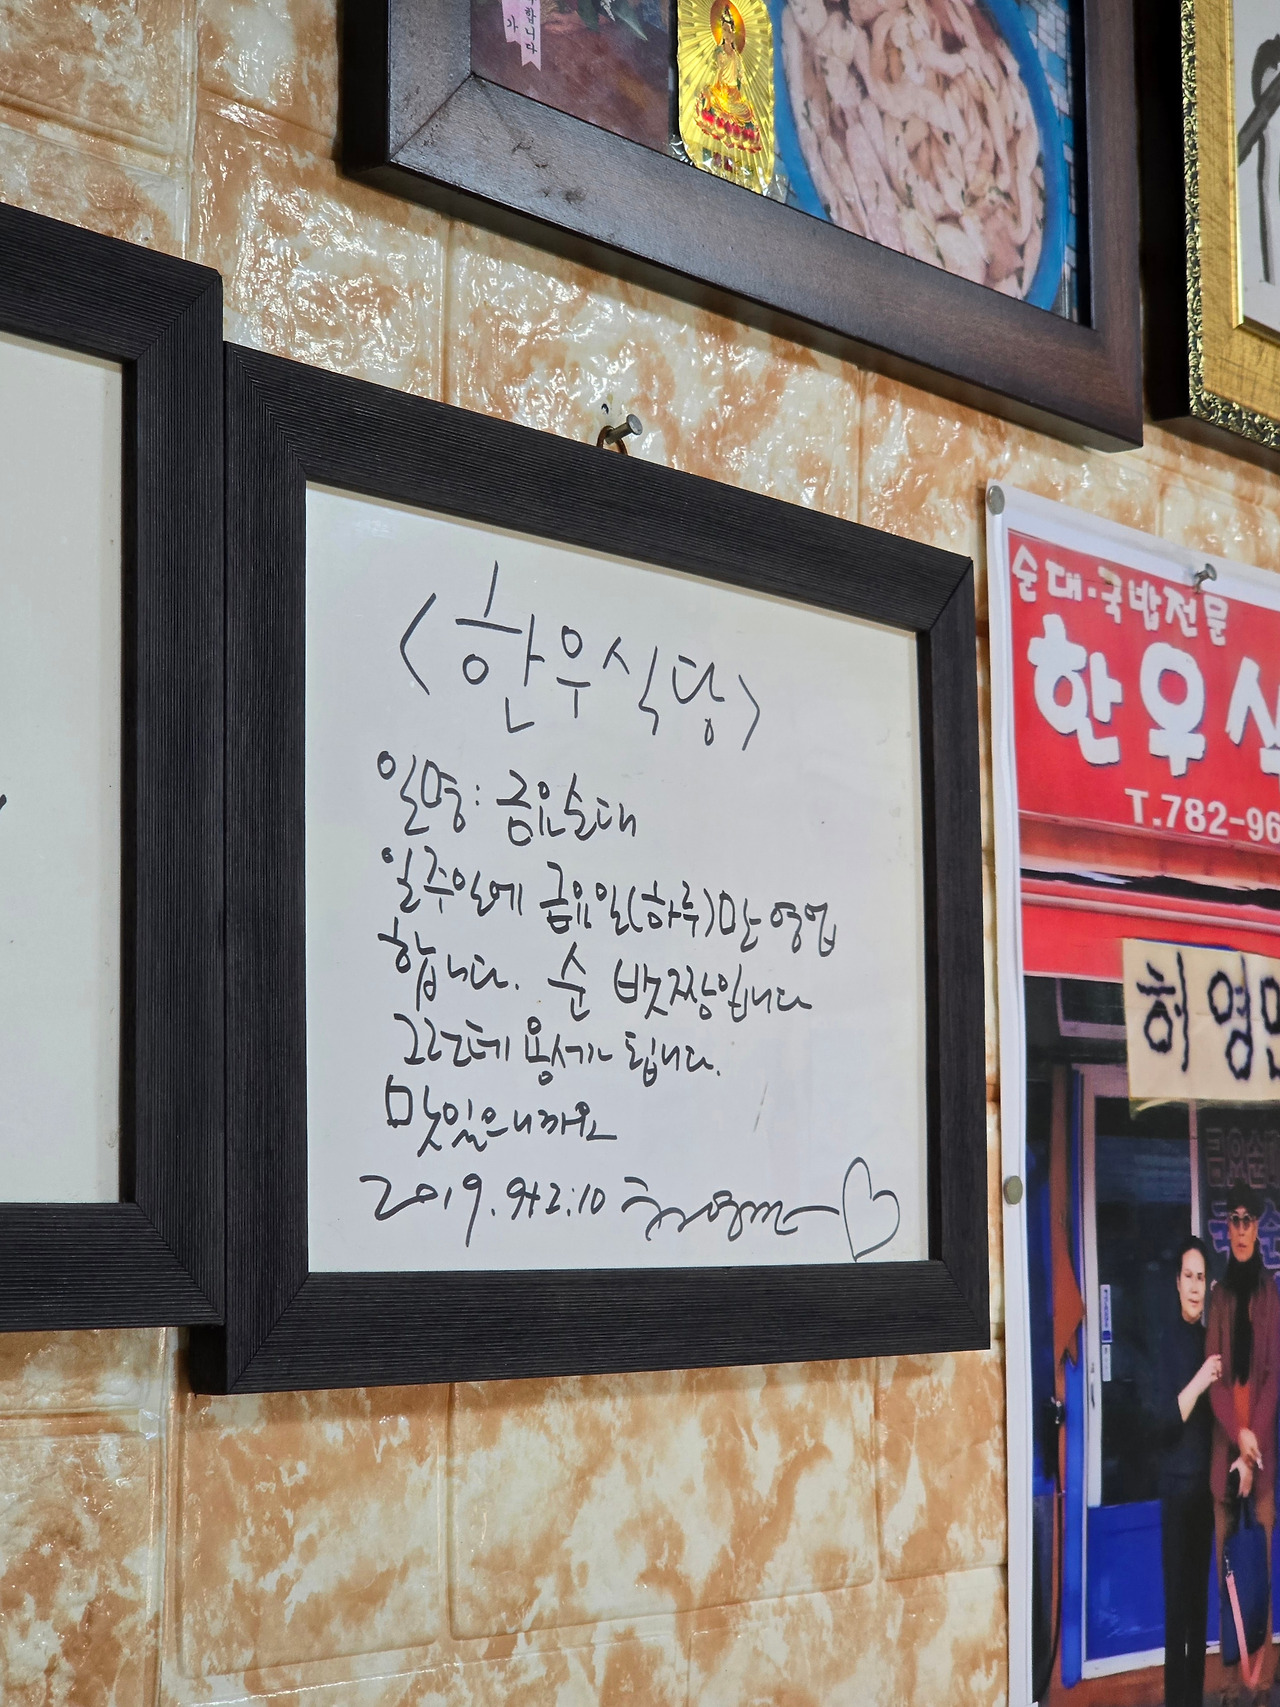 합니다
가
<한우식당>
일명: 금요순대
일주일에 금요일(하루)만 영업
합니다. 순 배짱입니다
그런데 용서가 됩니다.
맛있으니까요
2019. 9+2:10 허영만
순대·국밥전문
한우식
T.782-96
허영만
금요순대